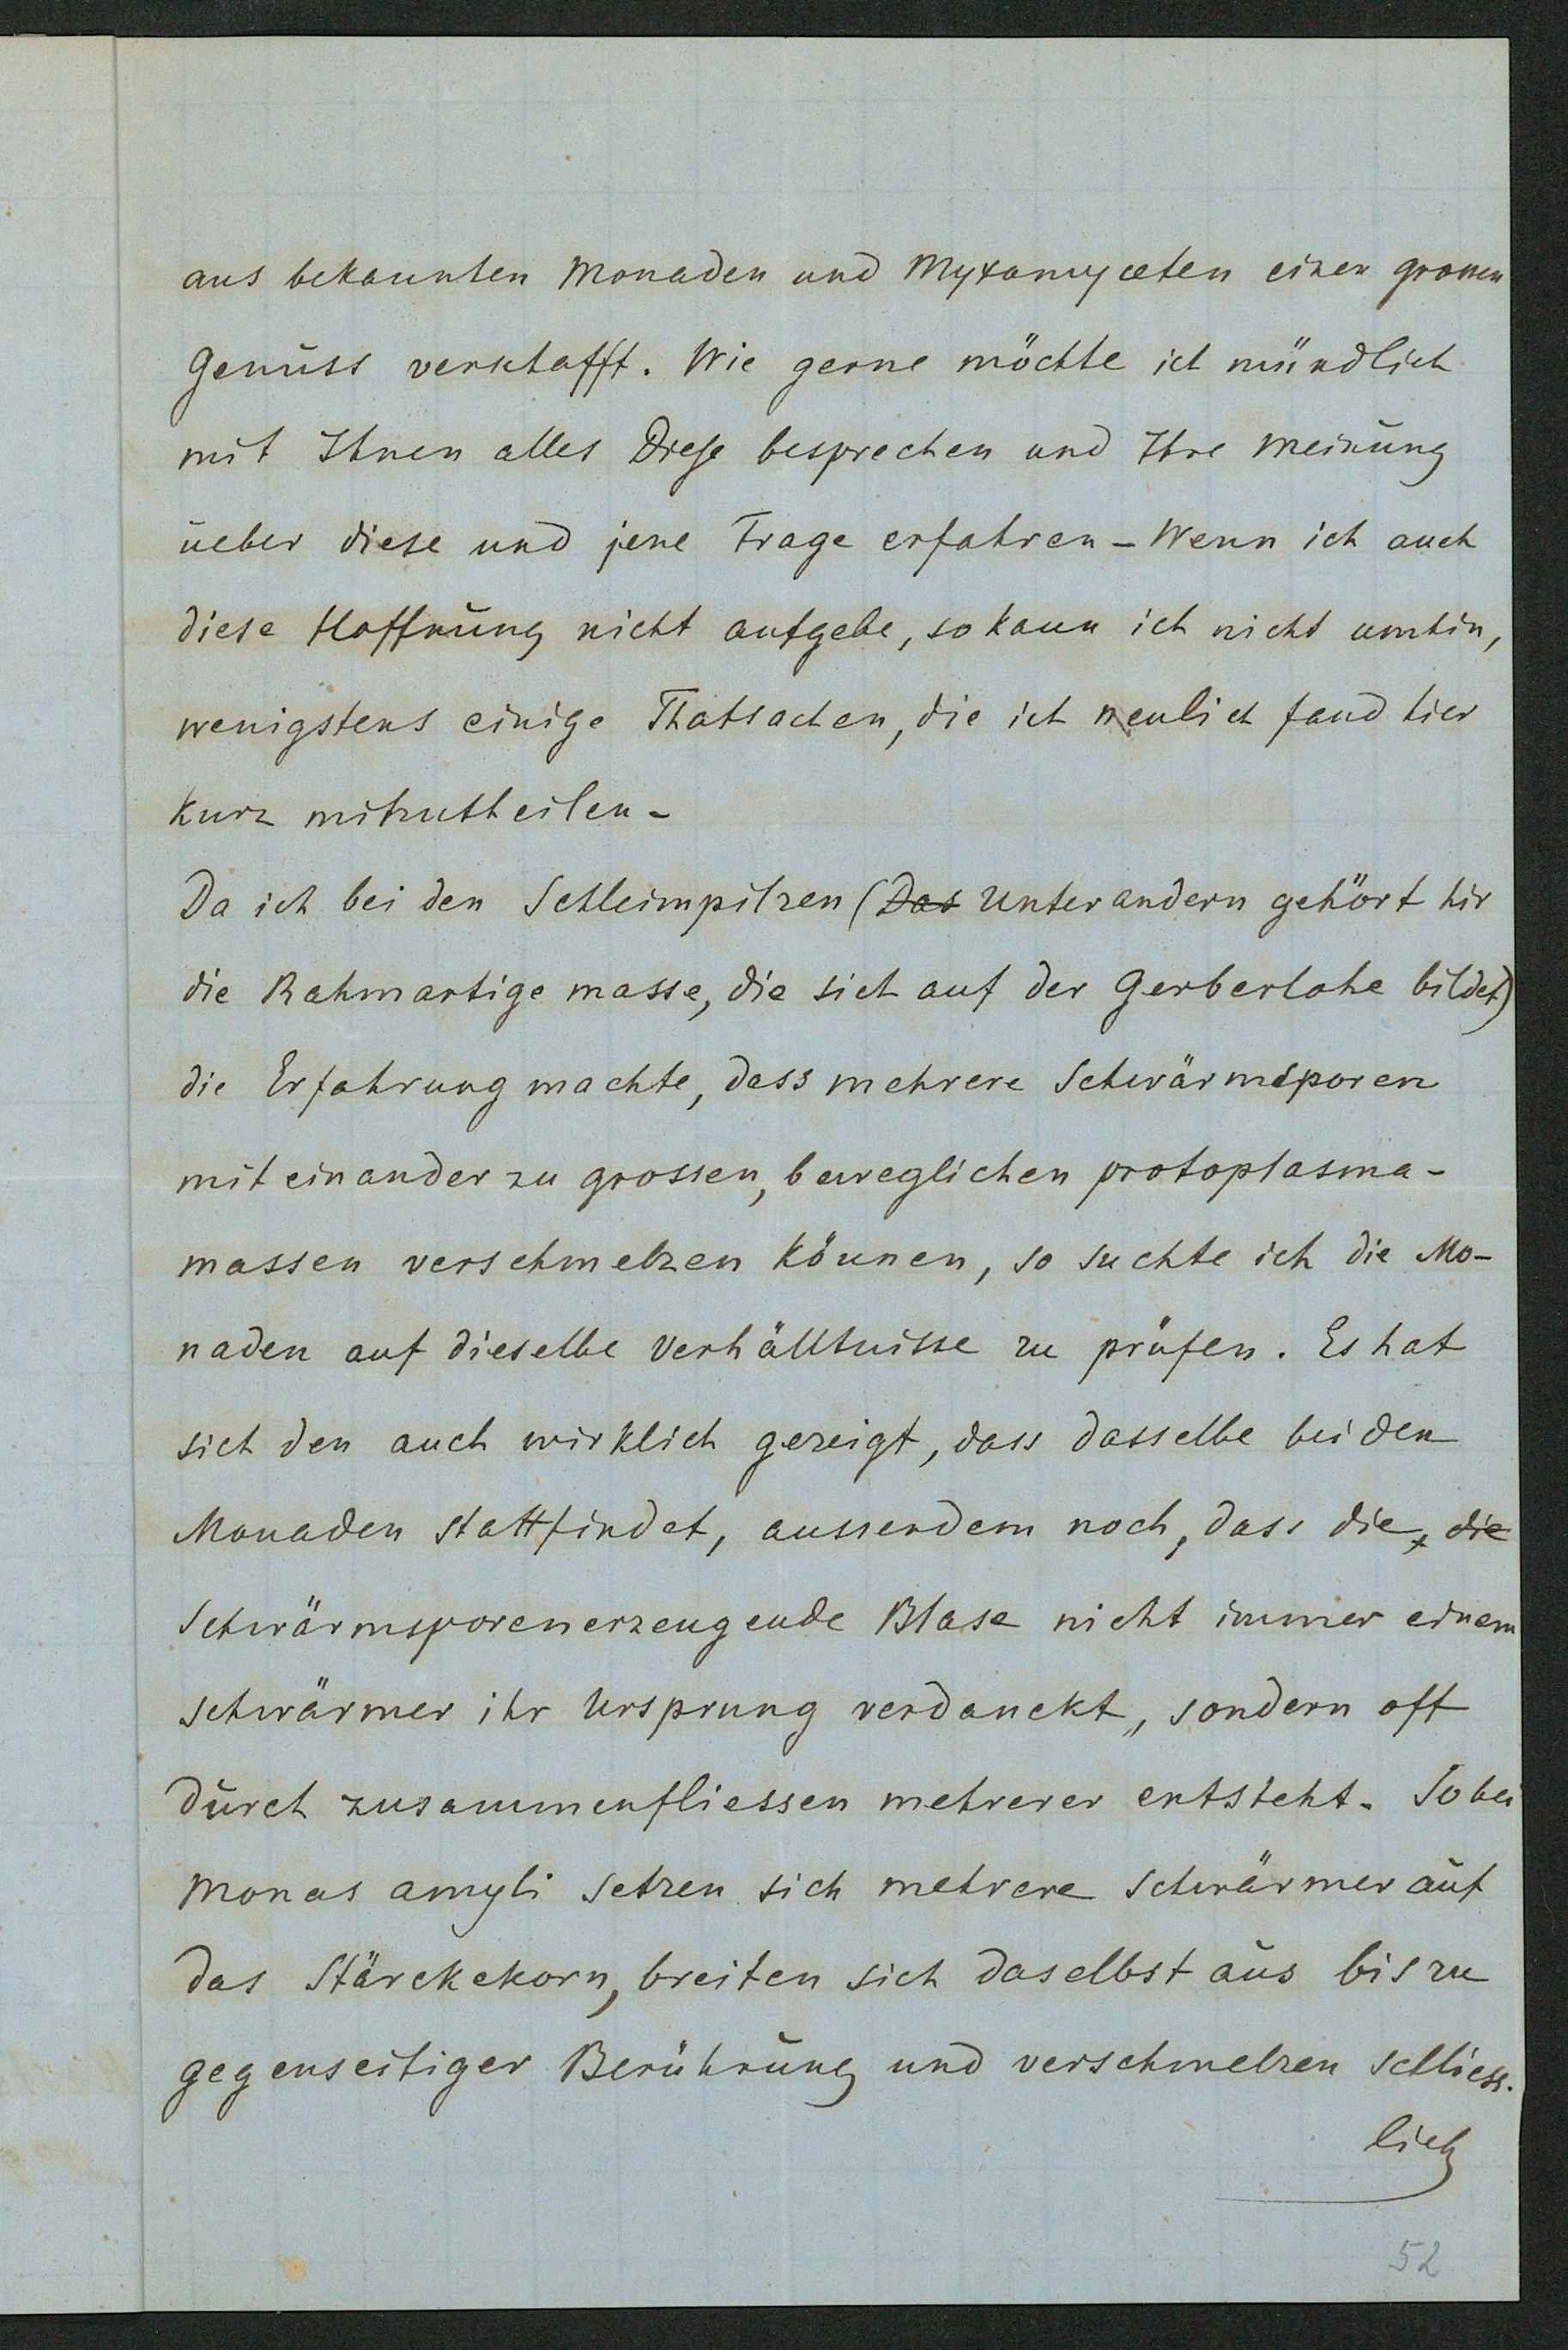 aus bekannten Monaden und Myxomyceten einen grossen
Genuss verschafft. Wie gerne möchte ich mündlich
mit Ihnen alles Diese besprechen und Ihre Meinung
ueber diese und jene Frage erfahren – Wenn ich auch
diese Hoffnung nicht aufgebe, so kann ich nicht umhin,
wenigstens einige Thatsachen, die ich neulich fand hier
kurz mitzutheilen –
Da ich bei den Schleimpilzen (Das Unter andern gehört hir
die Rahmartige masse, die sich auf der Gerberlohe bildet)
die Erfahrung machte, dass mehrere Schwärmsporen
mit einander zu grossen, beweglichen protoplasma-
massen verschmelzen können, so suchte ich die Mo-
naden auf dieselbe Verhälltnisse zu prüfen. Es hat
sich den auch wirklich gezeigt, dass dasselbe bei den
Monaden stattfindet, ausserdem noch, dass die, die
Schwärmsporenerzeugende Blase nicht immer einem
Schwärmer ihr Ursprung verdanckt, sondern oft
durch zusammenfliessen mehrerer entsteht. So bei
Monas amyli setzen sich mehrere Schwärmer auf
das Stärckekorn, breiten sich daselbst aus bis zu
gegenseitiger Berührung und verschmelzen schliess-
lich
52